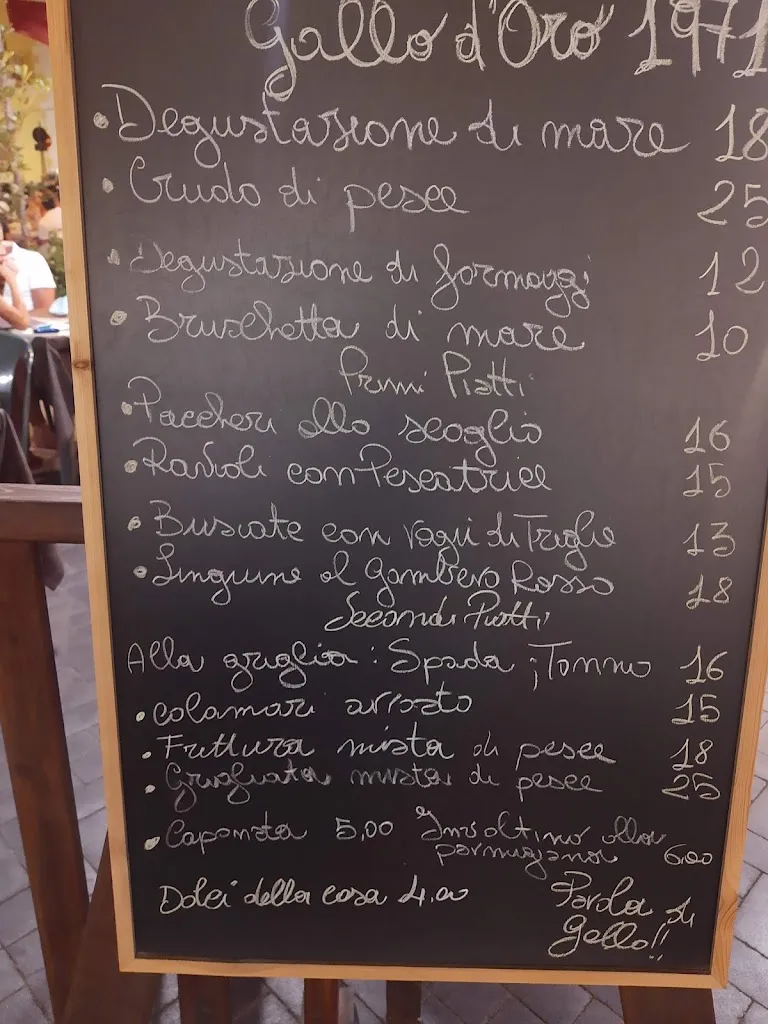 Gallo d'Oro 1971
• Degustazione di mare 18
• Crudo di pesce 25
• Degustazione di formaggi 12
• Bruschetta di mare 10
Primi Piatti
• Paccheri allo scoglio 16
• Ravioli con Pescatrice 15
• Busiate con ragù di Triglie 13
• Linguine al Gambero Rosso 18
Secondi Piatti
Alla griglia: Spada ; Tonno 16
• Calamari arrosto 15
• Frittura mista di pesce 18
• Grigliata mista di pesce 25
• Caponata 5,00 Involtino alla parmigiana 6,00
Dolci della casa 4,00
Parola di
Gallo!!